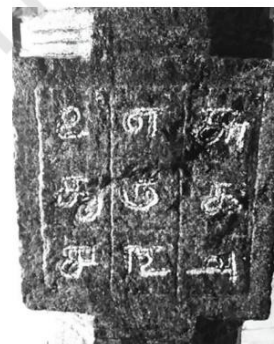 ௨ ௭ ௬
௯ ௫ ௧
௪ ௩ ௮